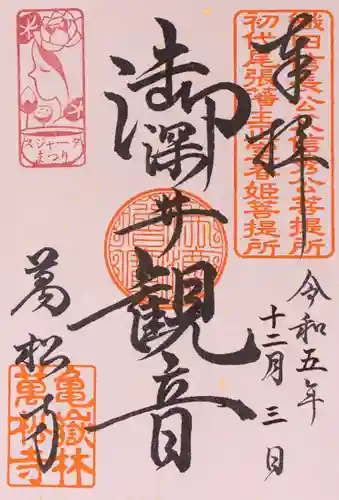 奉拝
織田信長公父信秀公菩提所
初代尾張藩主室春姫菩提所
御深井観音
スジャータ
まつり
令和五年
十二月三日
萬松寺
亀嶽林
萬松寺